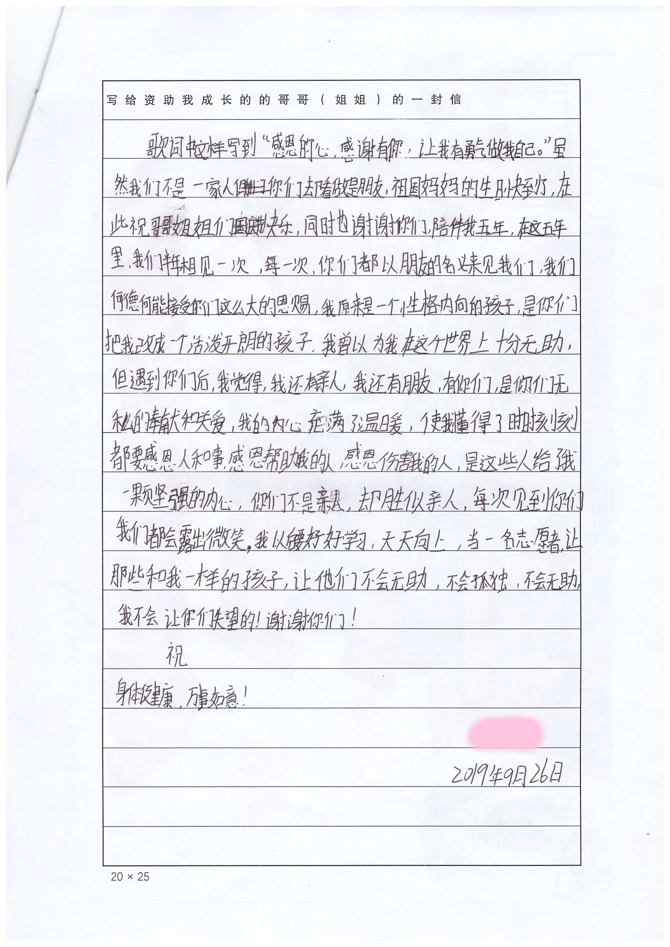 写给资助我成长的的哥哥（姐姐）的一封信
歌词中这样写到“感恩的心，感谢有你，让我有勇气做我自己。”虽
然我们不是一家人但你们去看做是朋友，祖国妈妈的生日快到了，在
此祝哥哥姐姐们国庆快乐，同时也谢谢你们，陪伴我五年，在这五年
里，我们半年相见一次，每一次，你们都以朋友的名义来见我们，我们
何德何能接受你们这么大的恩赐，我原来是一个性格内向的孩子，是你们
把我改成一个活泼开朗的孩子，我曾以为我在这个世界上十分无助，
但遇到你们后，我觉得，我还有亲人，我还有朋友，有你们，是你们无
私的奉献和关爱，我的内心充满了温暖，使我懂得了时时刻刻
都要感恩人和事，感恩帮助我的人，感恩伤害我的人，是这些人给了我
一颗坚强的内心，你们不是亲人，却胜似亲人，每次见到你们
我们都会露出微笑，我以后要好好学习，天天向上，当一名志愿者，让
那些和我一样的孩子，让他们不会无助，不会孤独，不会无助，
我不会让你们失望的！谢谢你们！
祝
身体健康，万事如意！
2019年9月26日
20×25